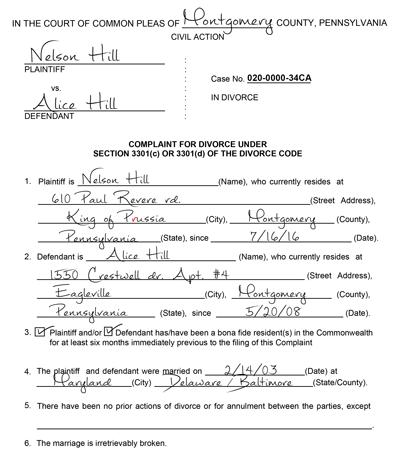 IN THE COURT OF COMMON PLEAS OF Montgomery COUNTY, PENNSYLVANIA
CIVIL ACTION
Nelson Hill
PLAINTIFF
Case No. 020-0000-34CA
vs.
IN DIVORCE
Alice Hill
DEFENDANT
COMPLAINT FOR DIVORCE UNDER
SECTION 3301(c) OR 3301(d) OF THE DIVORCE CODE
1. Plaintiff is Nelson Hill (Name), who currently resides at
610 Paul Revere rd. (Street Address),
King of Prussia (City), Montgomery (County),
Pennsylvania (State), since 7/16/16 (Date).
2. Defendant is Alice Hill (Name), who currently resides at
1330 Crestwell dr. Apt. #4 (Street Address),
Eagleville (City), Montgomery (County),
Pennsylvania (State), since 5/20/08 (Date).
3. ☑ Plaintiff and/or ☑ Defendant has/have been a bona fide resident(s) in the Commonwealth
for at least six months immediately previous to the filing of this Complaint
4. The plaintiff and defendant were married on 2/14/03 (Date) at
Maryland (City) Delaware / Baltimore (State/County).
5. There have been no prior actions of divorce or for annulment between the parties, except
6. The marriage is irretrievably broken.